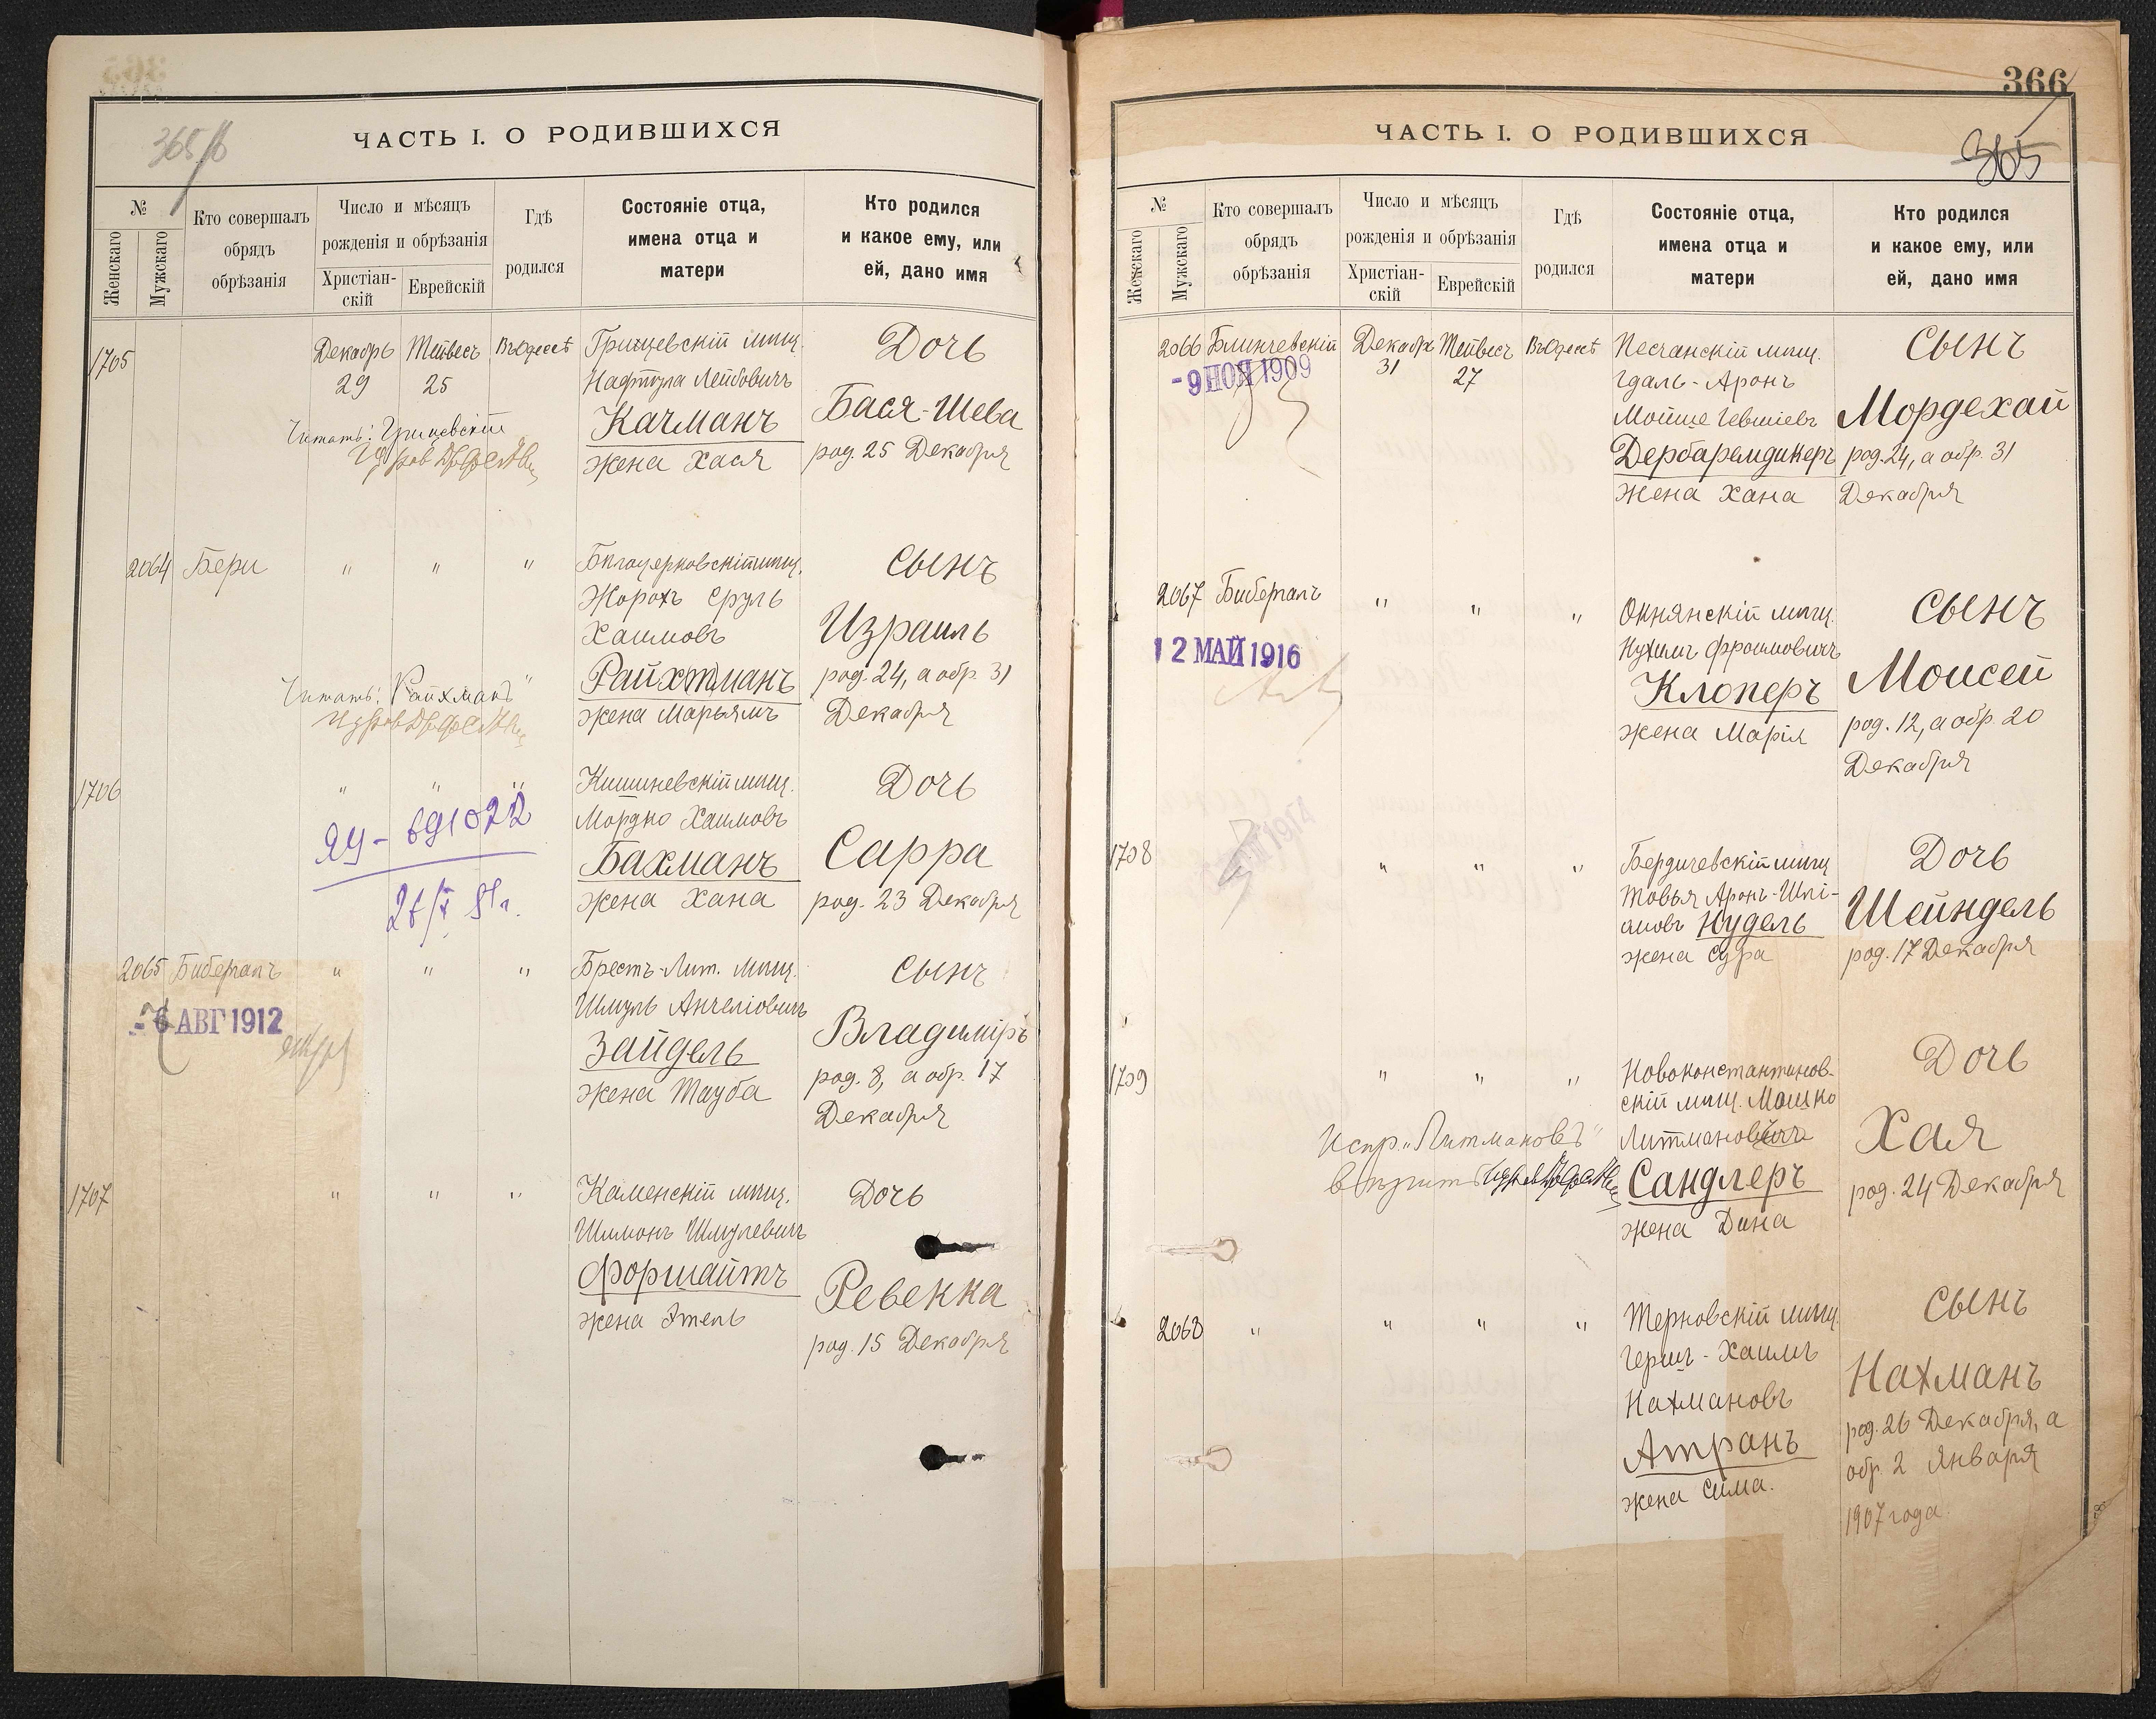 365/б
ЧАСТЬ I. О РОДИВШИХСЯ
№
Женскаго
Мужскаго
Кто совершалъ
обрядъ
обрѣзанія
Число и мѣсяцъ
рожденія и обрѣзанія
Христіан-
скій
Еврейскій
Гдѣ
родился
Состояніе отца,
имена отца и
матери
Кто родился
и какое ему, или
ей, дано имя
1705
Декабрь
29
Тейвесъ
25
Въ Одессѣ
Грицевскій мѣщ.
Нафтула Лейбовичъ
Качманъ
жена Хася
Дочь
Бася-Шева
род. 25 Декабря
Читать: Грицевскій
2064
Бери
"
"
"
Бѣлоцерковскій мѣщ.
Жорохъ Сруль
Хаимовъ
Райхтманъ
жена Марьямъ
Сынъ
Израиль
род. 24, а обр. 31
Декабря
Читать: Райхманъ"
1706
"
"
"
Кишиневскій мѣщ.
Мордко Хаимовъ
Бахманъ
жена Хана
Дочь
Сарра
род. 23 Декабря
2065
"
"
"
Брестъ-Лит. мѣщ.
Шмуль Анчеліовичъ
Зайдель
жена Тауба
Сынъ
Владиміръ
род. 8, а обр. 17
Декабря
- 6 АВГ 1912
1707
"
"
"
Каменскій мѣщ.
Шимонъ Шмулевичъ
Форшайтъ
жена Этель
Дочь
Ревекка
род. 15 Декабря
366
365
ЧАСТЬ I. О РОДИВШИХСЯ
№
Женскаго
Мужскаго
Кто совершалъ
обрядъ
обрѣзанія
Число и мѣсяцъ
рожденія и обрѣзанія
Христіан-
скій
Еврейскій
Гдѣ
родился
Состояніе отца,
имена отца и
матери
Кто родился
и какое ему, или
ей, дано имя
2066
Блинчевскій
- 9 НОЯ 1909
Декабрь
31
Тейвесъ
27
Въ Одессѣ
Песчанскій мѣщ.
Гдаль-Аронъ
Мойше Гевшіевъ
Дербаремдикеръ
жена Хана
Сынъ
Мордехай
род. 24, а обр. 31
Декабря
2067
12 МАЙ 1916
"
"
"
Окнянскій мѣщ.
Нухимъ Фроимовичъ
Клоперъ
жена Марія
Сынъ
Моисей
род. 12, а обр. 20
Декабря
1708
"
"
"
Бердичевскій мѣщ
Товья Аронъ-Шлі-
омовъ Нудель
жена Сура
Дочь
Шейндель
род. 17 Декабря
1709
"
"
"
Новоконстантинов-
скій мѣщ. Мошко
Литмановичъ
Сандлеръ
жена Дина
Дочь
Хая
род. 24 Декабря
Испр. "Литмановъ"
2068
"
"
"
"
Терновскій мѣщ.
Гершъ-Хаимъ
Нахмановъ
Атранъ
жена Сима.
Сынъ
Нахманъ
род. 26 Декабря, а
обр. 2 Января
1907 года.